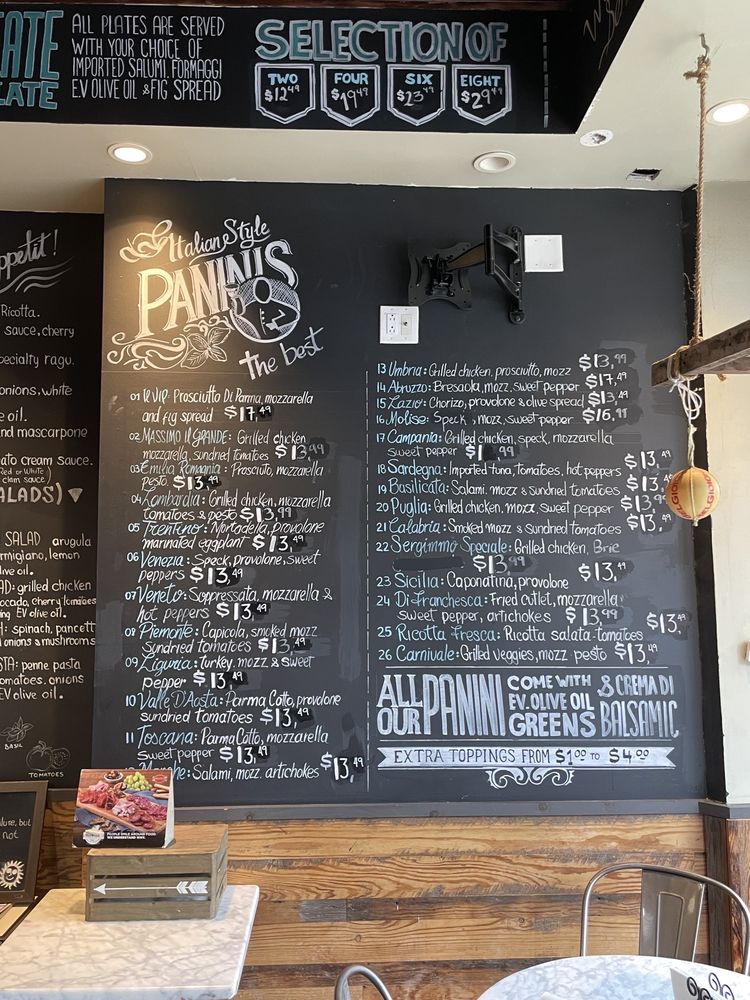 ATE
LATE
ALL PLATES ARE SERVED
WITH YOUR CHOICE OF
IMPORTED SALUMI, FORMAGGI
EV OLIVE OIL & FIG SPREAD
SELECTION OF
TWO
$12.49
FOUR
$19.49
SIX
$23.49
EIGHT
$29.49
ppetit!
Ricotta.
sauce, cherry
pecialty ragu.
onions, white
e oil.
nd mascarpone
ato cream sauce.
Red or White
clam sauce)
ALADS)
SALAD arugula
rmigiano, lemon
live oil.
AD: grilled chicken
ocado, cherry tomatoes
ng EV olive oil.
H: spinach, pancett
onions & mushrooms
STA: penne pasta
omatoes, onions
EV olive oil.
BASIL
TOMATOES
Italian Style
PANINIS
the best
01 Il VIP: Prosciutto Di Parma, mozzarella
and fig spread $17,49
02 MASSIMO IL GRANDE: Grilled chicken
mozzarella, sundried tomatoes $13,49
03 Emilia Romania: Prosciuto, mozzarella
pesto $13,49
04 Lombardia: Grilled chicken, mozzarella
tomatoes & pesto $13,99
05 Trentino: Mortadella, provolone
marinated eggplant $13,49
06 Venezia: Speck, provolone, sweet
peppers $13,49
07 Veneto: Soppressata, mozzarella &
hot peppers $13,49
08 Piemonte: Capicola, smoked mozz
Sundried tomatoes $13,49
09 Liguria: turkey, mozz & sweet
pepper $13,49
10 Valle D'Aosta: Parma Cotto, provolone
sundried tomatoes $13,49
11 Toscana: Parma Cotto, mozzarella
Sweet pepper $13,49
Marche: Salami, mozz. artichokes $13,49
13 Umbria: Grilled chicken, prosciutto, mozz $13,99
14 Abruzzo: Bresaola, mozz, sweet pepper $17,49
15 Lazio: Chorizo, provolone & olive spread $13,49
16 Molise: Speck, mozz, sweet pepper $16.99
17 Campania: Grilled chicken, speck, mozzarella
sweet pepper
18 Sardegna: Imported tuna, tomatoes, hot peppers $13,49
19 Basilicata: Salami, mozz & sundried tomatoes $13,49
20 Puglia: Grilled chicken, mozz, sweet pepper $13,99
21 Calabria: Smoked mozz & sundried tomatoes $13,49
22 Sergimmo Speciale: Grilled chicken, Brie
$13,99
23 Sicilia: Caponatina, provolone $13,49
24 Di Franchesca: Fried cutlet, mozzarella
sweet pepper, artichokes $13,99
25 Ricotta Fresca: Ricotta salata tomatoes $13,
26 Carnivale: Grilled veggies, mozz pesto $13,49
ALL OUR PANINI COME WITH EV. OLIVE OIL GREENS & CREMA DI BALSAMIC
EXTRA TOPPINGS FROM $1.00 TO $4.00
BELGIOIO
PEOPLE DINE AROUND FOOD.
WE UNDERSTAND WHY.
but
not